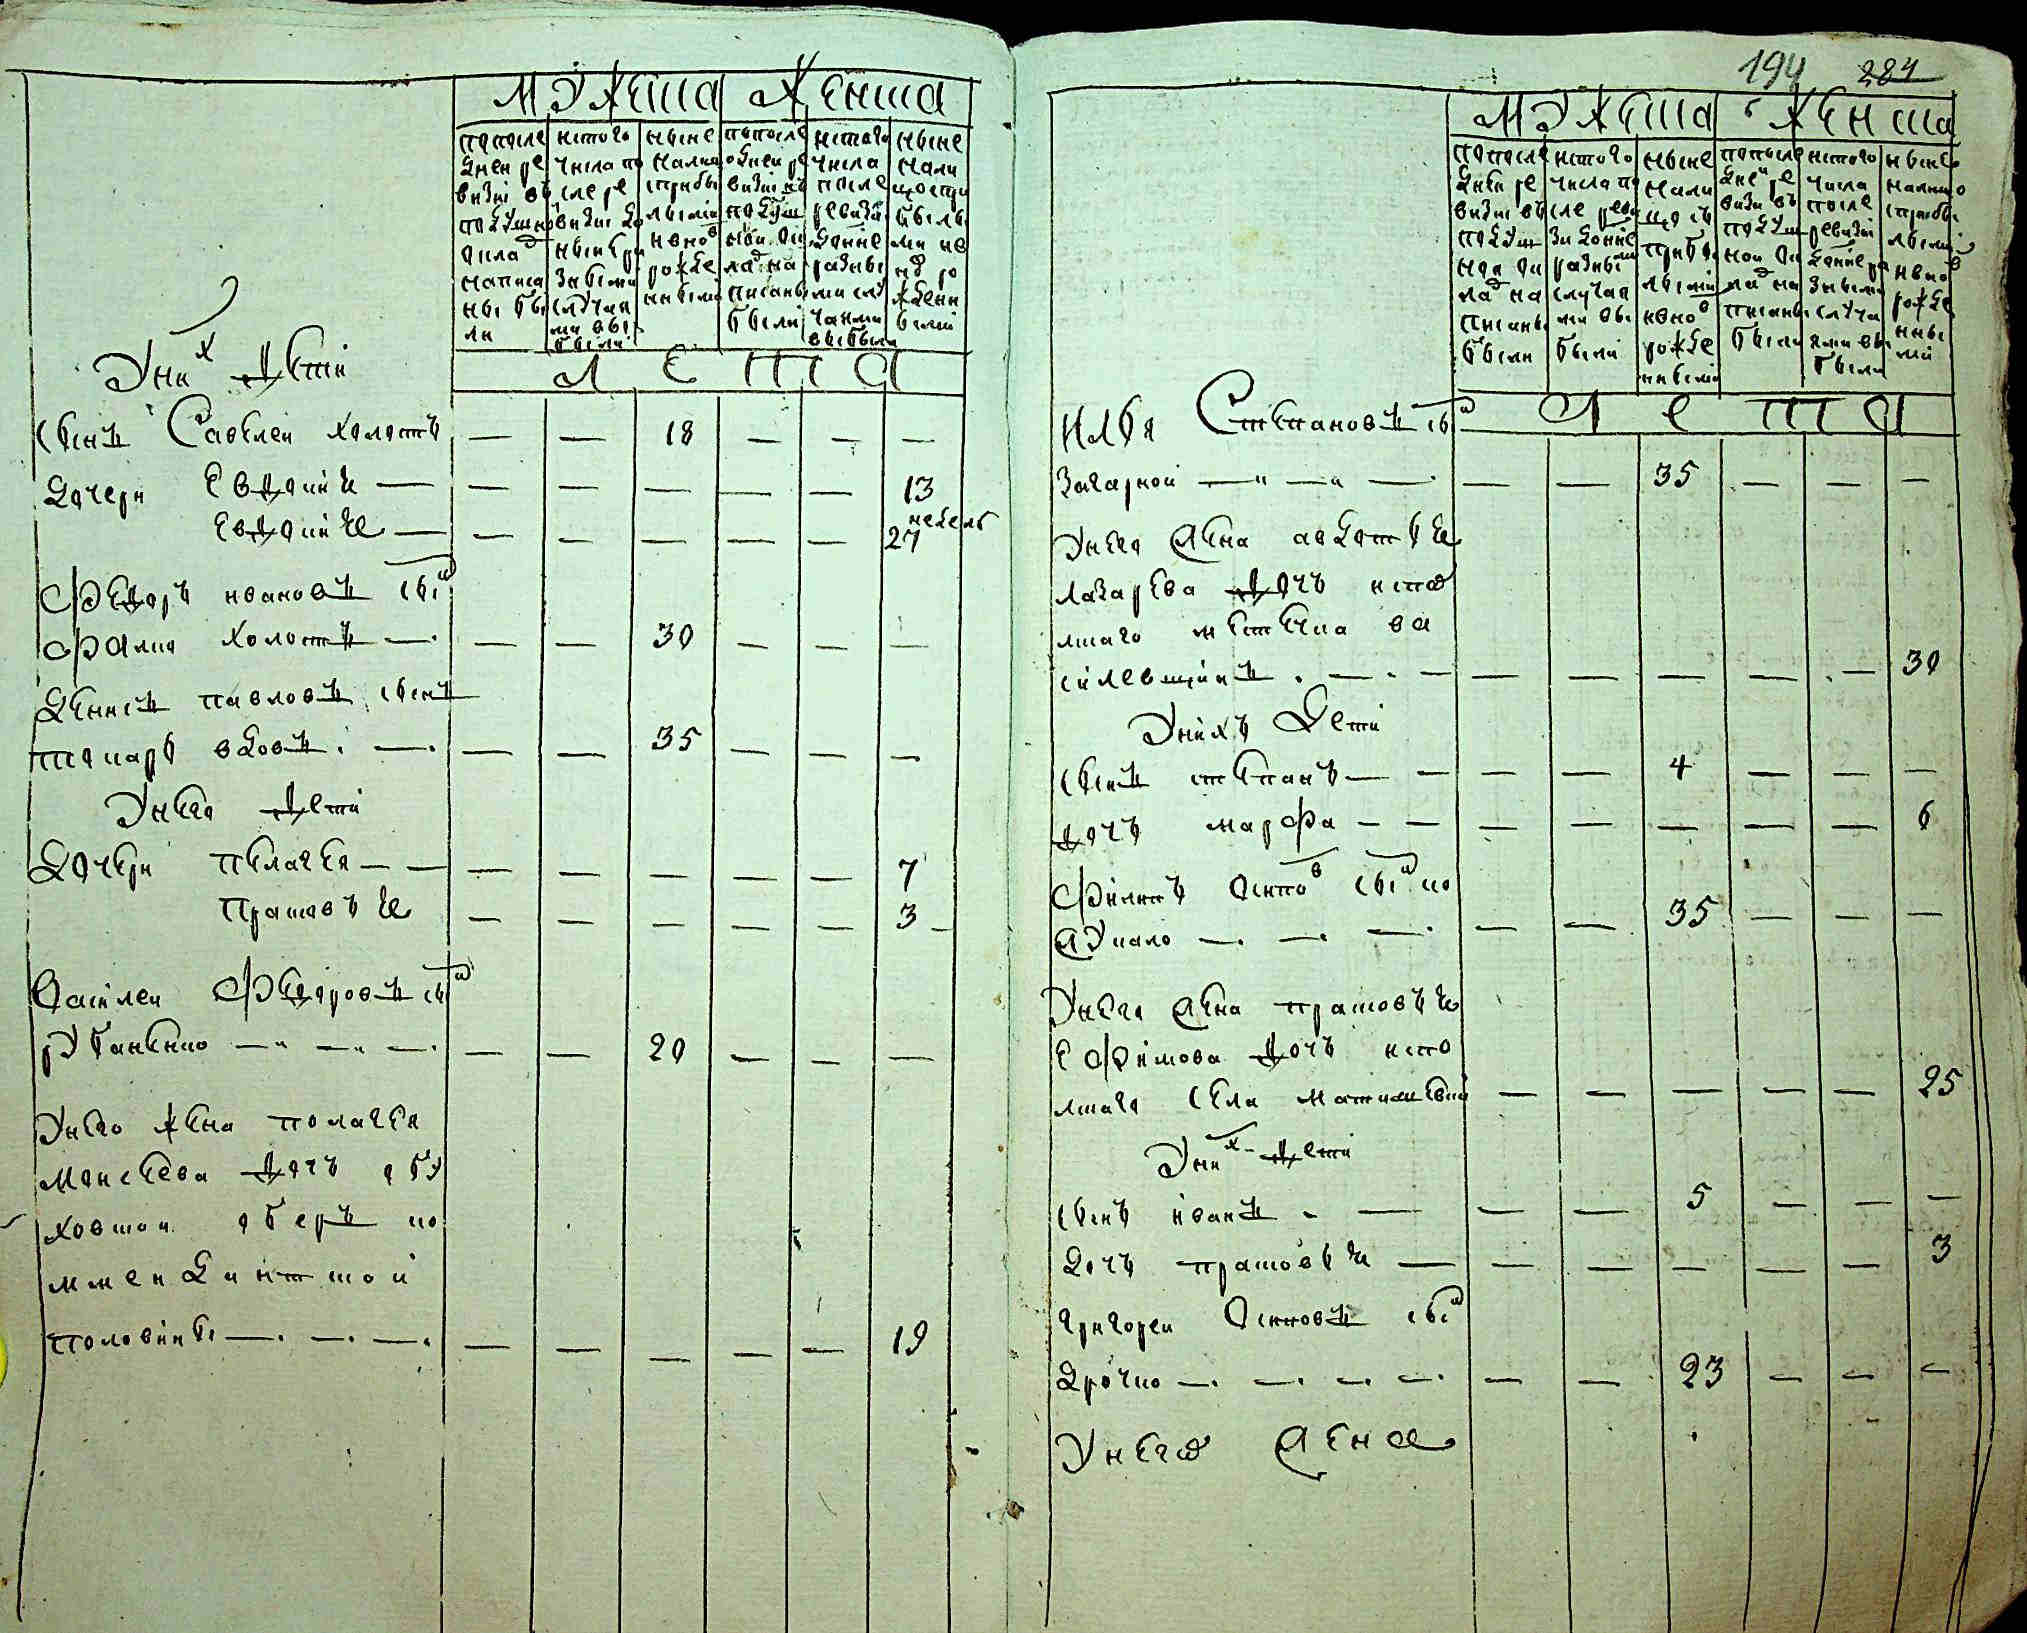 мужеска женска
попосле
дней ре
визиі въ
подушно
оклад
написа
ны бы
ли
исто го
числа по
сле ре
визиі до
ныне ра
зными
случаи
ми вы
были
ныне
налицо
спрыбы
лыми
ивнов
рожде
нными
попосле
дней ре
визиі въ
подуш
ной ок
лад на
писаны
были
истого
числа
после
ревизиі
донине
разны
ми слу
чаями
выбыли
ныне
нали
цо спри
былы
ми ив
нов ро
жден
ными
лета
У них дети
сынъ Савелеи холостъ — — 18 — — —
Дочери Евдокия — — — — — — 13
Евдокия — — — — — — неделъ 27
Федоръ ивановъ сы
холостъ — — — 30 — — —
Денисъ павловъ сынъ
токарь вдовъ — — — 35 — — —
Унего дети
Дочери пелагея — — — — — — — 7
Прасковъя — — — — — 3
Василеи Федоровъ сы
рубаненко — — — — — 20 — — —
Унего жена полагея
моисеева дочъ обу
ховшои
половины — — — — — — — — 19
194 284
мужеска женска
попосле
дней ре
визиі въ
подуш
ной ок
лад на
писаны
были
истого
числа по
сле реви
зиі донине
разными
случая
ми вы
были
ныне
нали
цо съ
прибы
лыми
ивнов
рожде
нными
попосле
дней ре
визиі въ
подуш
ной ок
лад на
писаны
были
истого
числа
после
ревизиі
донине ра
зными
случа
ями вы
были
ныне
налицо
сприбы
лыми
ивнов
рожде
нны
ми
лета
Илья Степановъ сы
Загарной — — — — — 35 — — —
Унего жена авдотья
лазарева дочъ исто
лшаго местечка ва
силевщинъ — — — — — — — 30
Унихъ Дети
сынъ степанъ — — — — 4 — — —
дочъ марфа — — — — — — — 6
Филипъ осипов сы ко
— — — — — 35 — — —
Унего жена прасковья
Ефимова дочъ исто
лшаго села — — — — — 25
Уних дети
сынъ иванъ — — — — 5 — — —
Дочъ прасковья — — — — — — 3
григореи Осиповъ сы
Дрочко — — — — — — 23 — — —
Унего жена